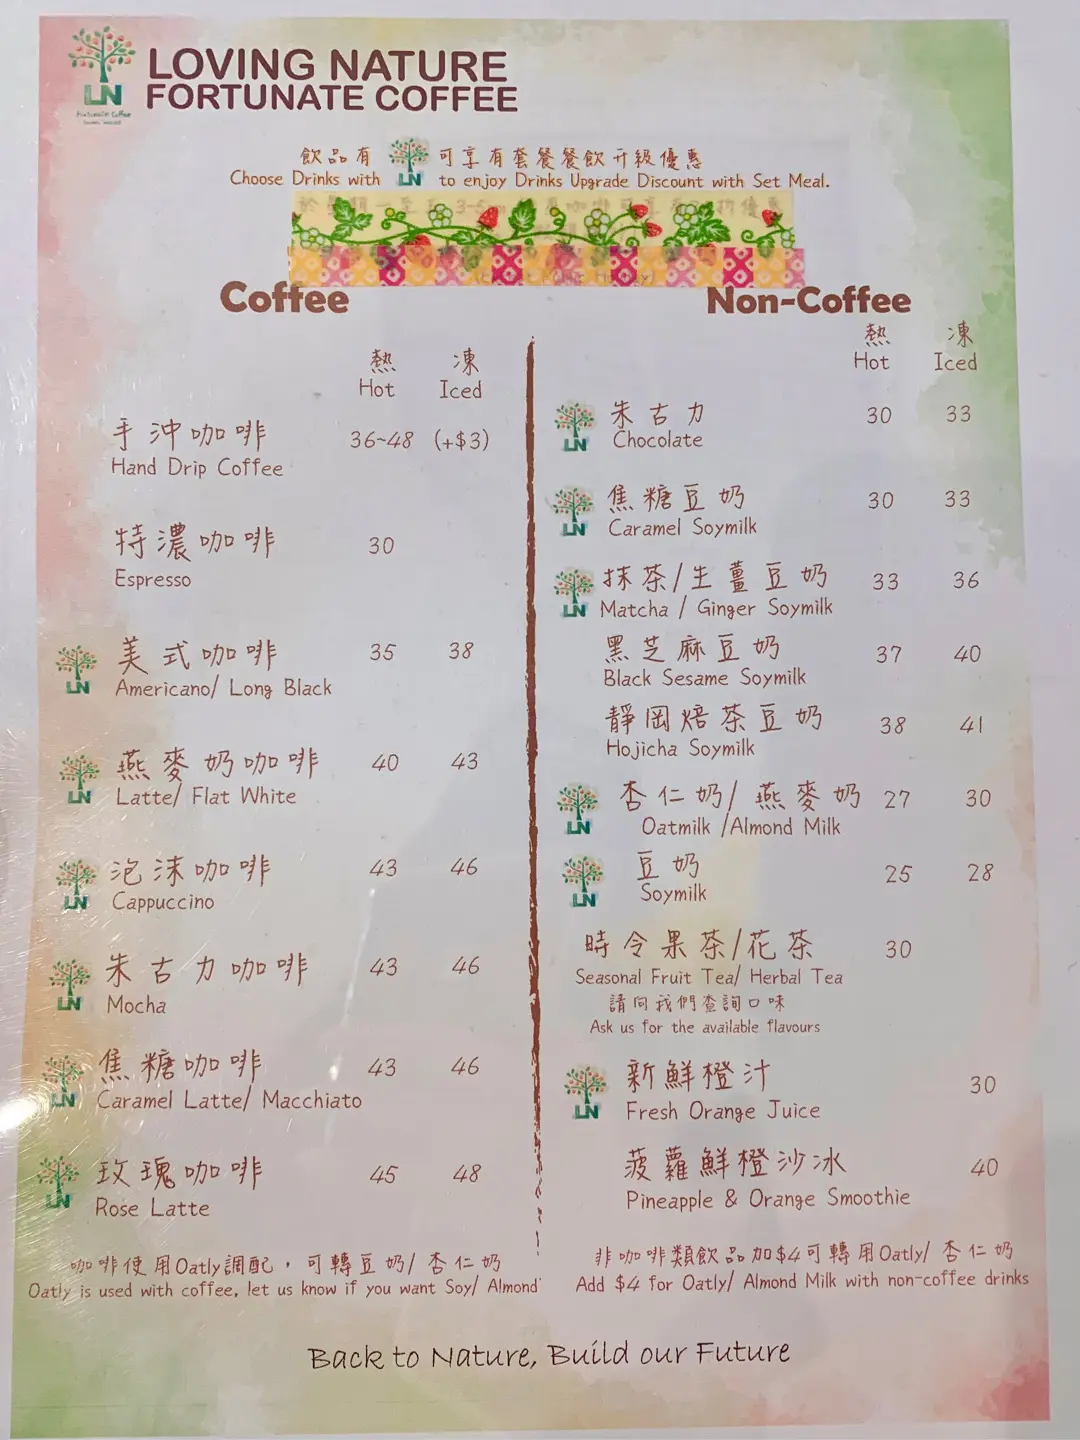 LOVING NATURE
FORTUNATE COFFEE
LN
Fortunate Coffee
飲品有 LN 可享有套餐餐飲升級優惠
Choose Drinks with LN to enjoy Drinks Upgrade Discount with Set Meal.
Coffee
熱 凍
Hot Iced
手沖咖啡 36~48 (+$3)
Hand Drip Coffee
特濃咖啡 30
Espresso
LN 美式咖啡 35 38
Americano/ Long Black
LN 燕麥奶咖啡 40 43
Latte/ Flat White
LN 泡沫咖啡 43 46
Cappuccino
LN 朱古力咖啡 43 46
Mocha
LN 焦糖咖啡 43 46
Caramel Latte/ Macchiato
LN 玫瑰咖啡 45 48
Rose Latte
咖啡使用Oatly調配，可轉豆奶/ 杏仁奶
Oatly is used with coffee, let us know if you want Soy/ Almond
Non-Coffee
熱 凍
Hot Iced
LN 朱古力 30 33
Chocolate
LN 焦糖豆奶 30 33
Caramel Soymilk
LN 抹茶/生薑豆奶 33 36
Matcha / Ginger Soymilk
黑芝麻豆奶 37 40
Black Sesame Soymilk
靜岡焙茶豆奶 38 41
Hojicha Soymilk
LN 杏仁奶/ 燕麥奶 27 30
Oatmilk /Almond Milk
LN 豆奶 25 28
Soymilk
時令果茶/花茶 30
Seasonal Fruit Tea/ Herbal Tea
請向我們查詢口味
Ask us for the available flavours
LN 新鮮橙汁 30
Fresh Orange Juice
菠蘿鮮橙沙冰 40
Pineapple & Orange Smoothie
非咖啡類飲品加$4可轉用Oatly/ 杏仁奶
Add $4 for Oatly/ Almond Milk with non-coffee drinks
Back to Nature, Build our Future